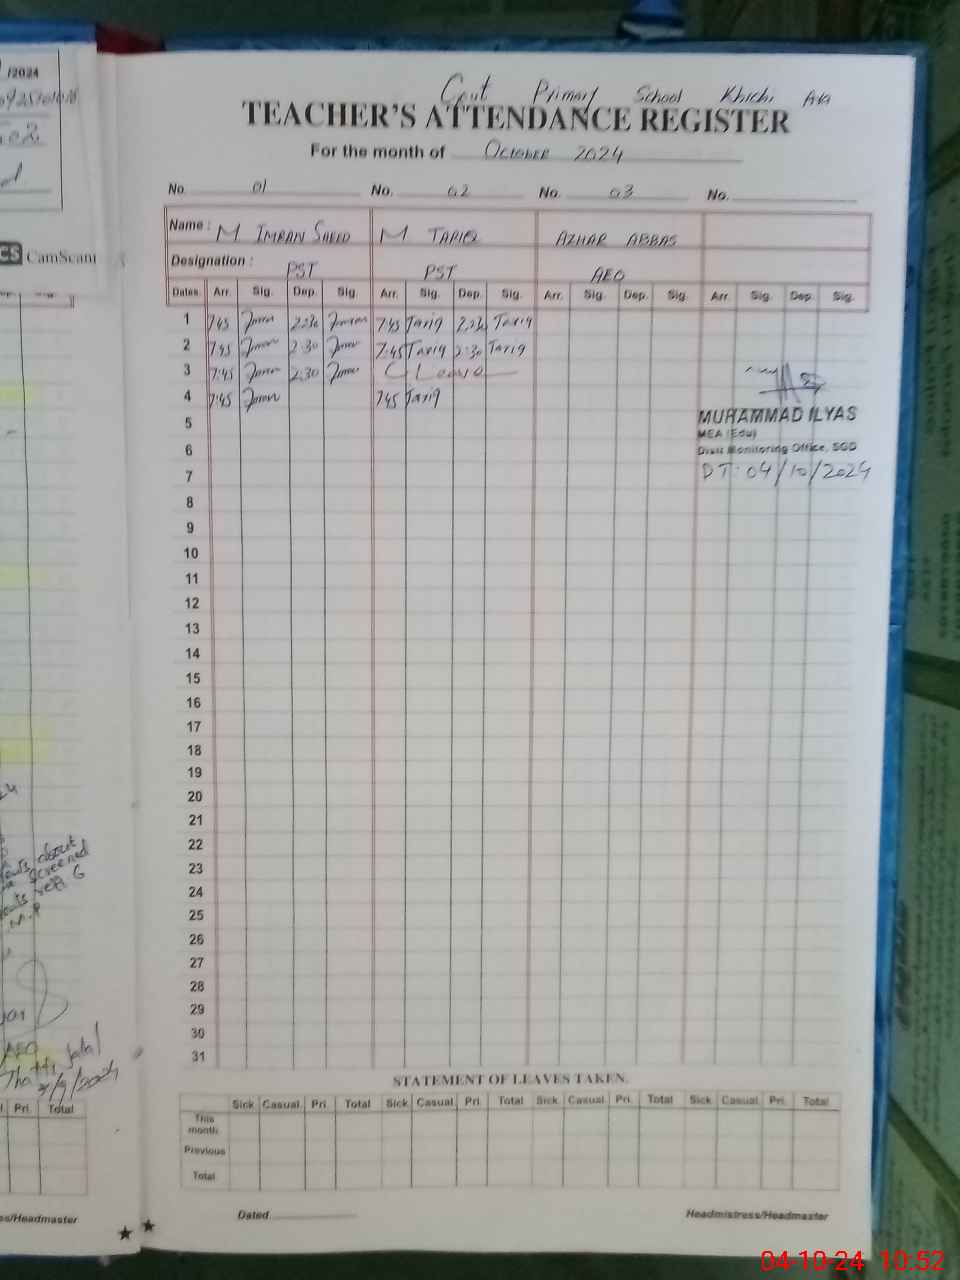 /2024
CS CamScann
Govt Primary School Khichi
TEACHER'S ATTENDANCE REGISTER
For the month of October 2024
No. 01 No. 02 No. 03 No.
Name : M IMRAN SAEED M TARIQ AZHAR ABBAS
Designation : PST PST AEO
Dates Arr. Sig. Dep. Sig. Arr. Sig. Dep. Sig. Arr. Sig. Dep. Sig. Arr. Sig. Dep. Sig.
1 7:45 Imran 2:30 Imran 7:45 Tariq 2:30 Tariq
2 7:45 Imran 2:30 Imran 7:45 Tariq 2:30 Tariq
3 7:45 Imran 2:30 Imran C Leave
4 7:45 Imran 7:45 Tariq
MUHAMMAD ILYAS
MEA (Edu)
Distt Monitoring Office, SGD
DT: 04/10/2024
5
6
7
8
9
10
11
12
13
14
15
16
17
18
19
20
21
22
23
24
25
26
27
28
29
30
31
STATEMENT OF LEAVES TAKEN.
Sick Casual Pri. Total Sick Casual Pri. Total Sick Casual Pri. Total Sick Casual Pri. Total
This month
Previous
Total
Dated
Headmistress/Headmaster
screened
AEO
Pri. Total
ss/Headmaster
04-10-24 10:52